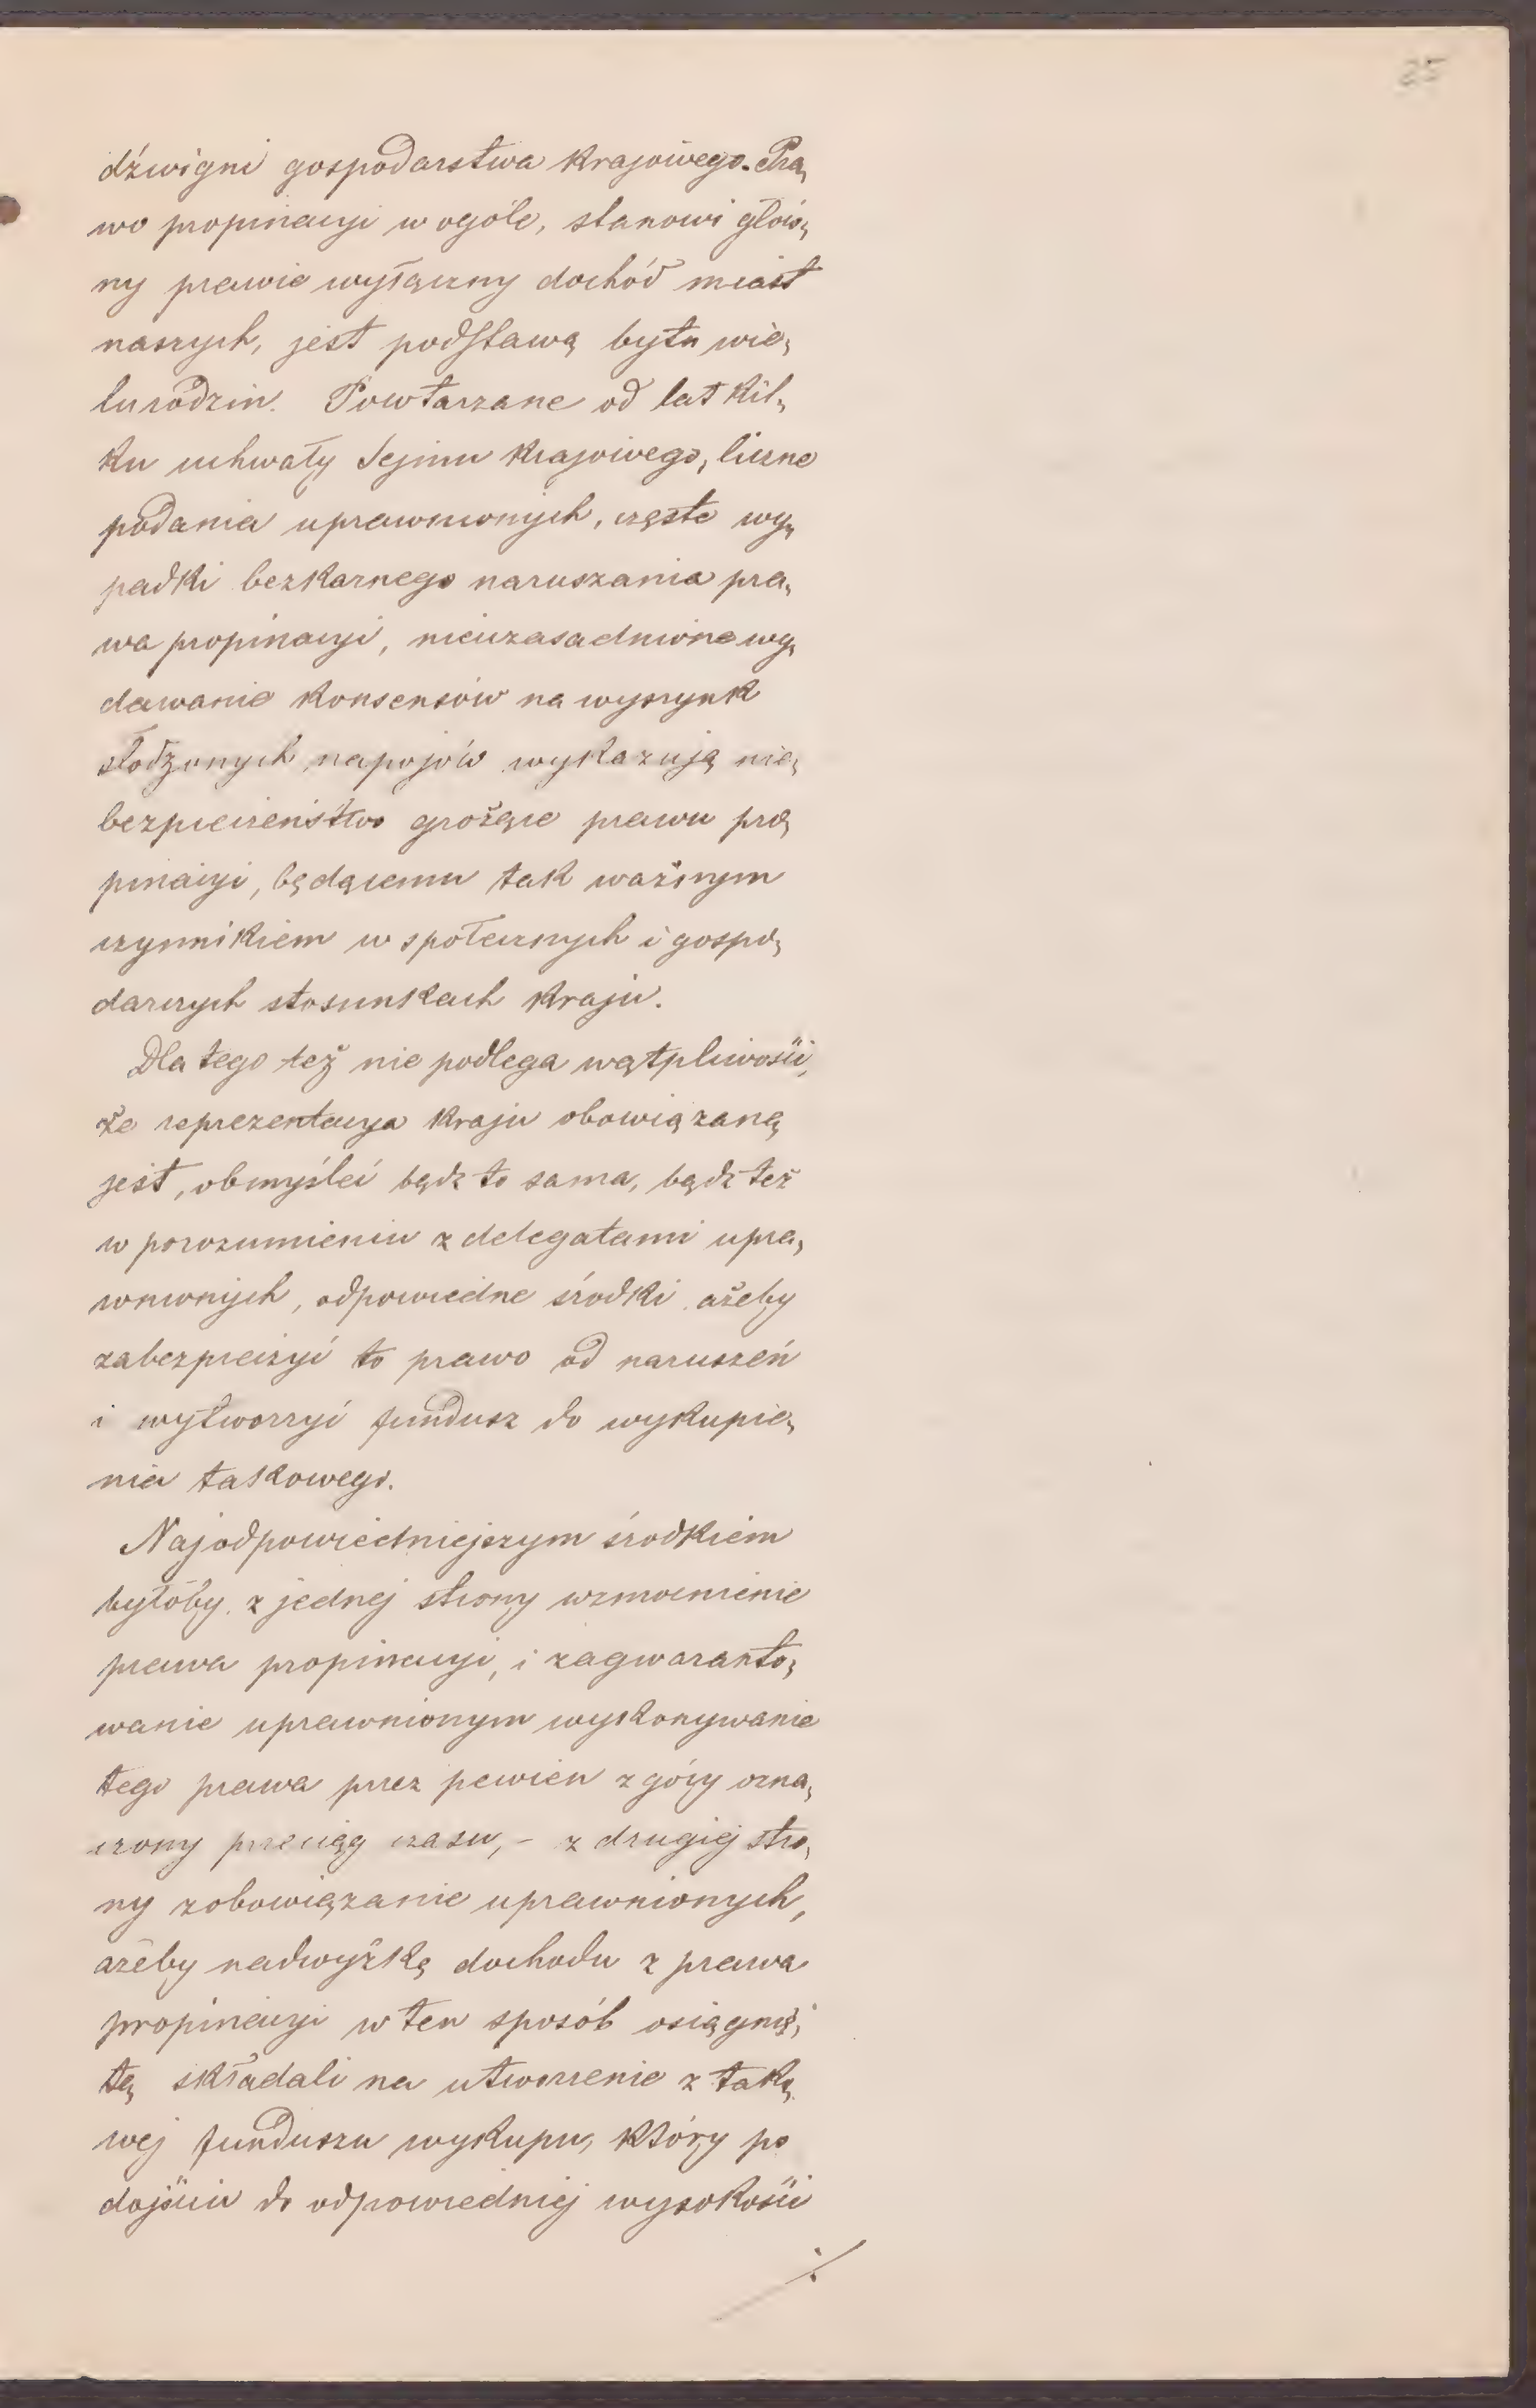 25
dźwigni gospodarstwa krajowego. Pra„
wo propinacyi w ogóle, stanowi głów„
ny prawie wyłączny dochód miast
naszych, jest podstawą bytu wie„
lu rodzin. Powtarzane od lat kil„
ku uchwały Sejmu krajowego, liczne
podania uprawnionych, częste wy„
padki bezkarnego naruszania pra„
wa propinacyi, nieuzasadnione wy„
dawanie konsensów na wyszynk
słodzonych napojów wykazują nie„
bezpieczeństwo grożące prawu pro„
pinacyi, będącemu tak ważnym
czynnikiem w społecznych i gospo„
darczych stosunkach kraju.
Dla tego też nie podlega wątpliwości,
że reprezentacya kraju obowiązaną
jest, obmyśleć bądź to sama, bądź też
w porozumieniu z delegatami upra„
wnionych, odpowiedne środki, ażeby
zabezpieczyć to prawo od naruszeń
i wytworzyć fundusz do wykupie„
nia takowego.
Najodpowiedniejszym środkiem
byłoby z jednej strony wzmocnienie
prawa propinacyi, i zagwaranto„
wanie uprawnionym wykonywanie
tego prawa przez pewien z góry ozna„
czony przeciąg czasu, - z drugiej stro„
ny zobowiązanie uprawnionych,
ażeby nadwyżkę dochodu z prawa
propinacyi w ten sposób osiągnię„
tą składali na utworzenie z tako„
wej funduszu wykupu, który po
dojściu do odpowiedniej wysokości
./.